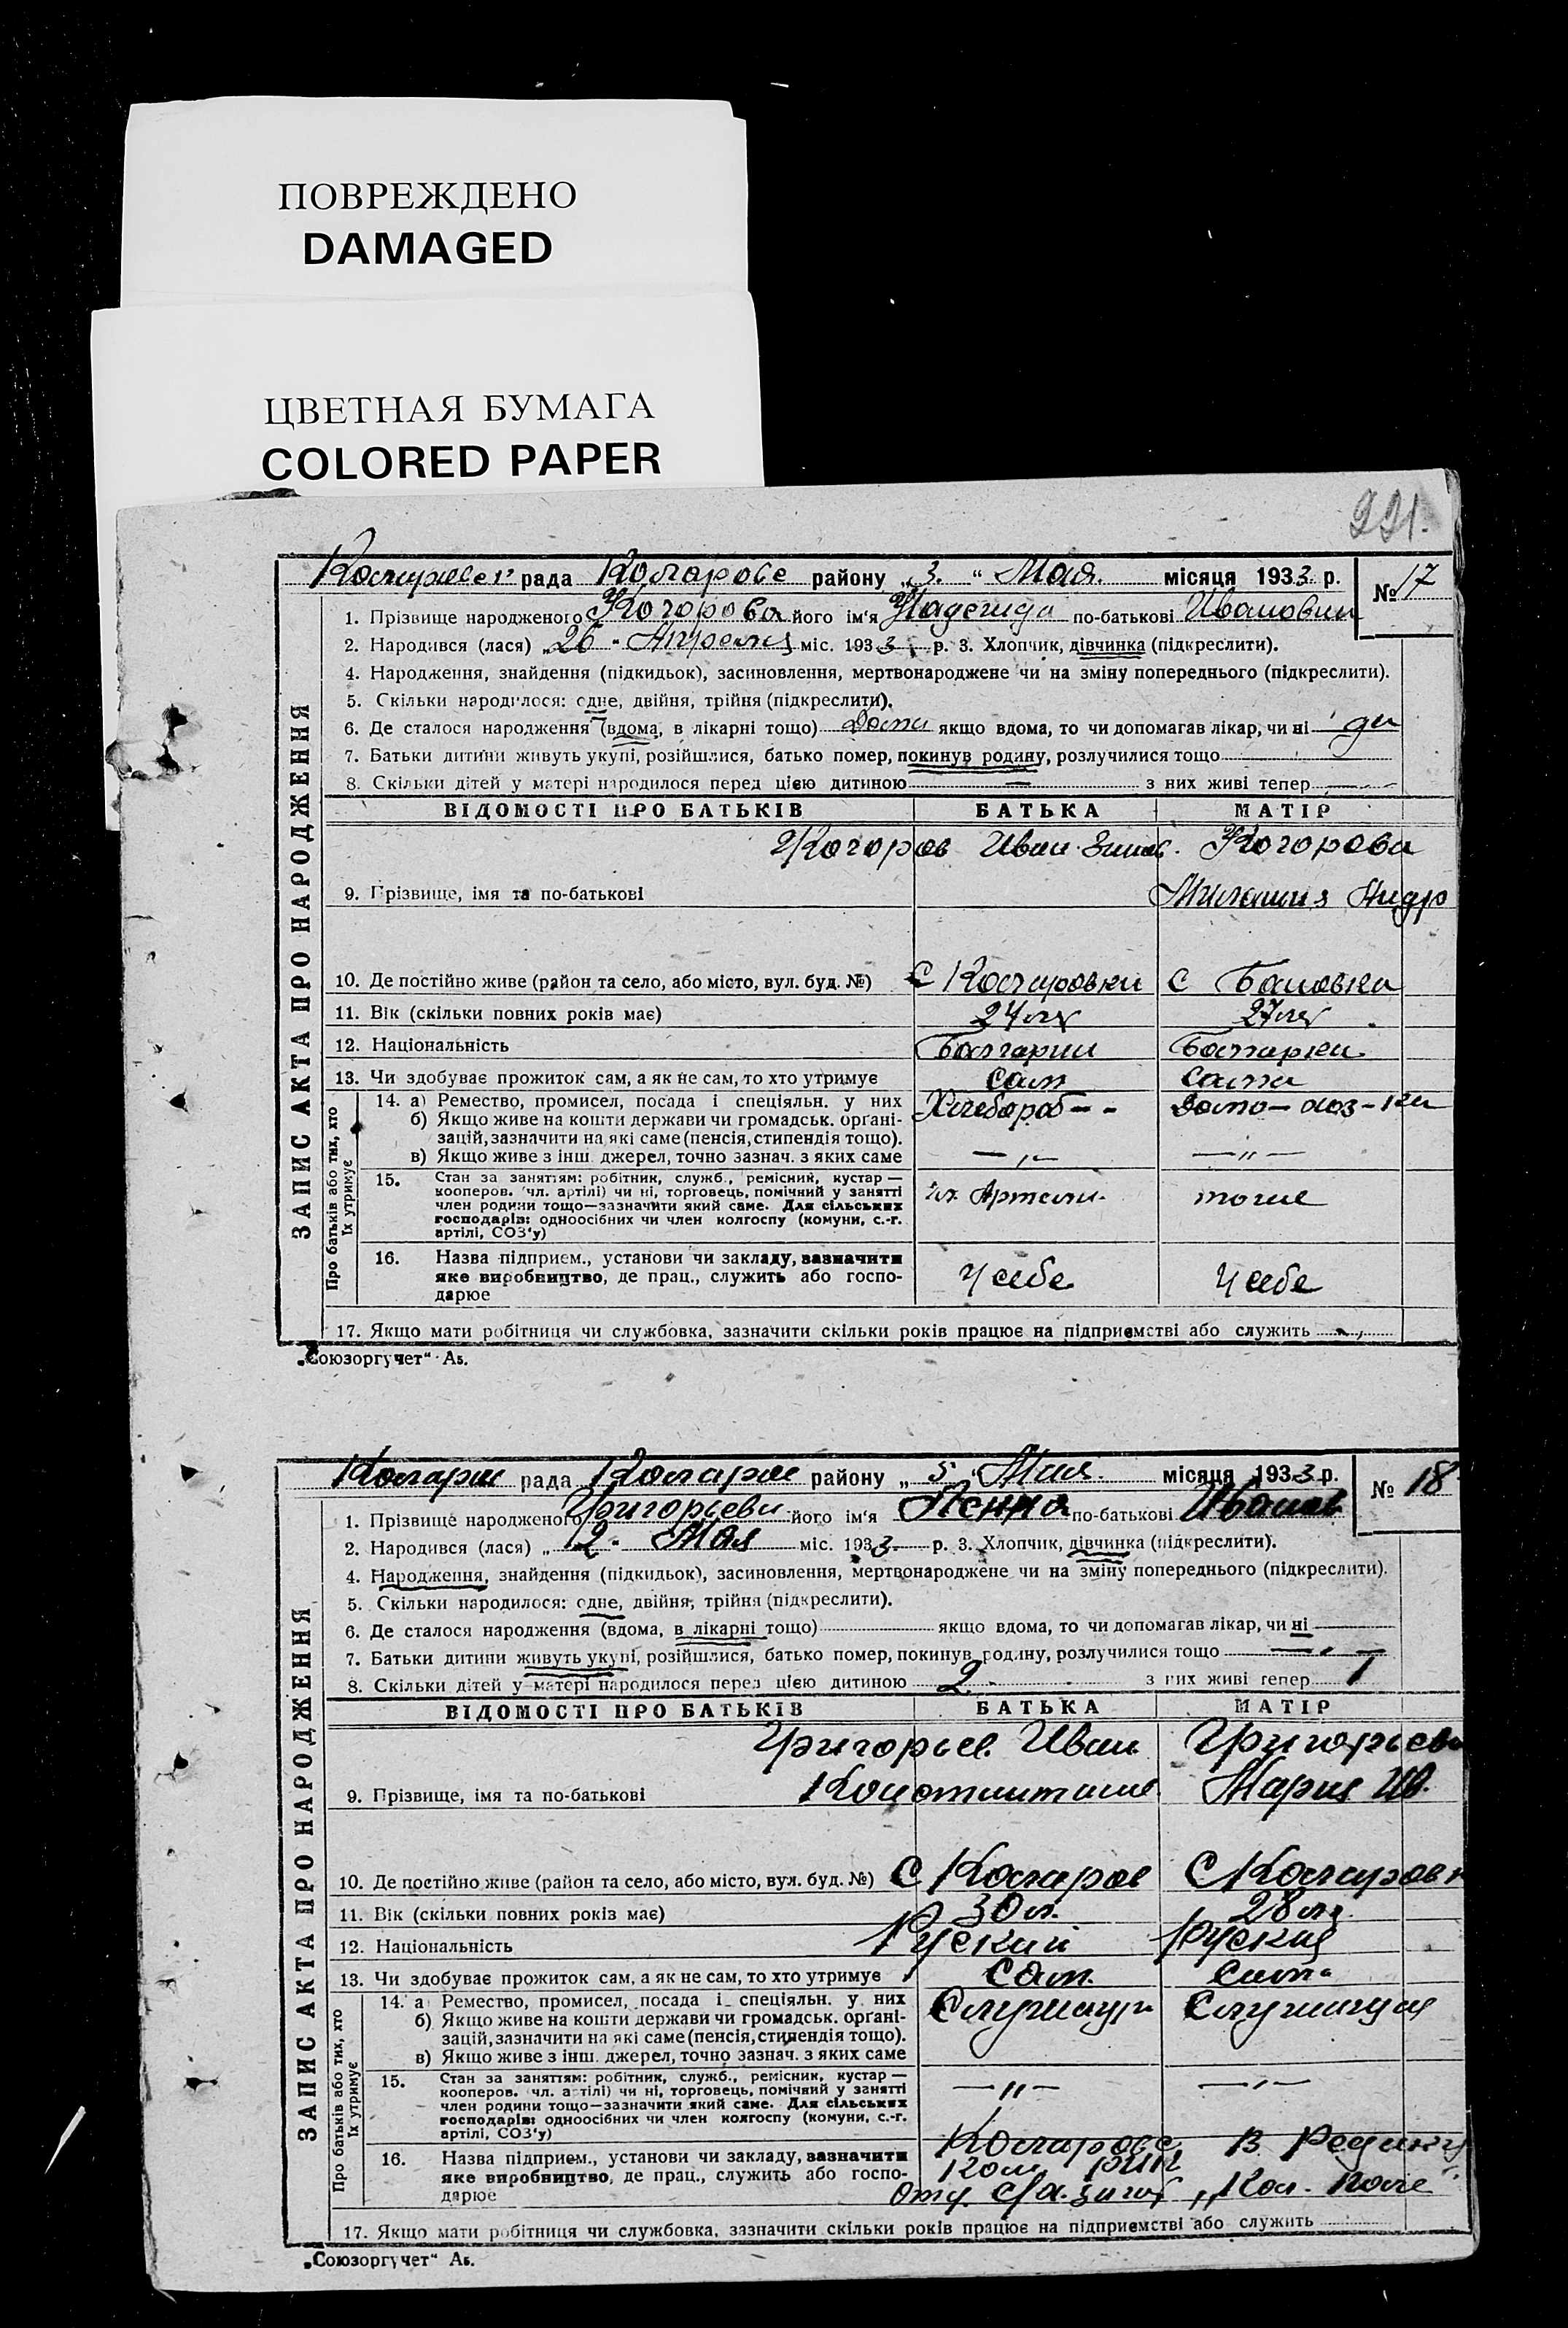 ПОВРЕЖДЕНО
DAMAGED
ЦВЕТНАЯ БУМАГА
COLORED PAPER
221.
рада Колгарове району „3.“ Мая. місяця 1933 р. № 17
1. Прізвище народженого його ім'я Надежда по-батькові Ивановни
2. Народився (лася) „26 - Апреля міс. 1933 р. 3. Хлопчик, дівчинка (підкреслити).
4. Народження, знайдення (підкидьок), засиновлення, мертвонароджене чи на зміну попереднього (підкреслити).
5. Скільки народилося: одне, двійня, трійня (підкреслити).
6. Де сталося народження (вдома, в лікарні тощо) Дома якщо вдома, то чи допомагав лікар, чи ні да
7. Батьки дитини живуть укупі, розійшлися, батько помер, покинув родину, розлучилися тощо
8. Скільки дітей у матері народилося перед цією дитиною — з них живі тепер —
ЗАПИС АКТА ПРО НАРОДЖЕННЯ
ВІДОМОСТІ ПРО БАТЬКІВ БАТЬКА МАТІР
Иван
9. Прізвище, імя та по-батькові
10. Де постійно живе (район та село, або місто, вул. буд. №) С Колгаровки С Бановка
11. Вік (скільки повних років має) 24 27
12. Національність Болгарин Болгарка
13. Чи здобуває прожиток сам, а як не сам, то хто утримує Сам Сама
Про батьків або тих, хто їх утримує
14. а) Ремество, промисел, посада і спеціяльн. у них Хлебороб - - Домо-хоз-ка
б) Якщо живе на кошти держави чи громадськ. орґані-
зацій, зазначити на які саме (пенсія, стипендія тощо).
в) Якщо живе з інш. джерел, точно зазнач. з яких саме — „ — — „ —
15. Стан за заняттям: робітник, служб., ремісник, кустар —
кооперов. чл. артілі) чи ні, торговець, помічний у занятті
член родини тощо—зазначити який саме. Для сільських
господарів: одноосібних чи член колгоспу (комуни, с.-г.
артілі, СОЗ'у)
чл. Артели. тоже
16. Назва підприєм., установи чи закладу, зазначити
яке виробництво, де прац., служить або госпо-
дарює
У себе У себе
17. Якщо мати робітниця чи службовка, зазначити скільки років працює на підприємстві або служить
„Союзоргучет“ А5.
рада району „5“ Мая. місяця 1933 р. № 18
1. Прізвище народженого Григорьева його ім'я по-батькові Иванов
2. Народився (лася) „2 - Мая міс. 1933 р. 3. Хлопчик, дівчинка (підкреслити).
4. Народження, знайдення (підкидьок), засиновлення, мертвонароджене чи на зміну попереднього (підкреслити).
5. Скільки народилося: одне, двійня, трійня (підкреслити).
6. Де сталося народження (вдома, в лікарні тощо) якщо вдома, то чи допомагав лікар, чи ні
7. Батьки дитини живуть укупі, розійшлися, батько помер, покинув родину, розлучилися тощо
8. Скільки дітей у матері народилося перед цією дитиною 2 з них живі тепер 1
ЗАПИС АКТА ПРО НАРОДЖЕННЯ
ВІДОМОСТІ ПРО БАТЬКІВ БАТЬКА МАТІР
Григорьев Иван Григорьева
9. Прізвище, імя та по-батькові Мария Ив.
10. Де постійно живе (район та село, або місто, вул. буд. №) С Колгаров С Колгаровк
11. Вік (скільки повних років має) 30 л. 28
12. Національність Руский Руская
13. Чи здобуває прожиток сам, а як не сам, то хто утримує Сам. Сама
Про батьків або тих, хто їх утримує
14. а) Ремество, промисел, посада і спеціяльн. у них Служащи Служащая
б) Якщо живе на кошти держави чи громадськ. орґані-
зацій, зазначити на які саме (пенсія, стипендія тощо).
в) Якщо живе з інш. джерел, точно зазнач. з яких саме
15. Стан за заняттям: робітник, служб., ремісник, кустар —
кооперов. чл. артілі) чи ні, торговець, помічний у занятті
член родини тощо—зазначити який саме. Для сільських
господарів: одноосібних чи член колгоспу (комуни, с.-г.
артілі, СОЗ'у)
— „ — — „ —
16. Назва підприєм., установи чи закладу, зазначити
яке виробництво, де прац., служить або госпо-
дарює
17. Якщо мати робітниця чи службовка, зазначити скільки років працює на підприємстві або служить
„Союзоргучет“ А5.